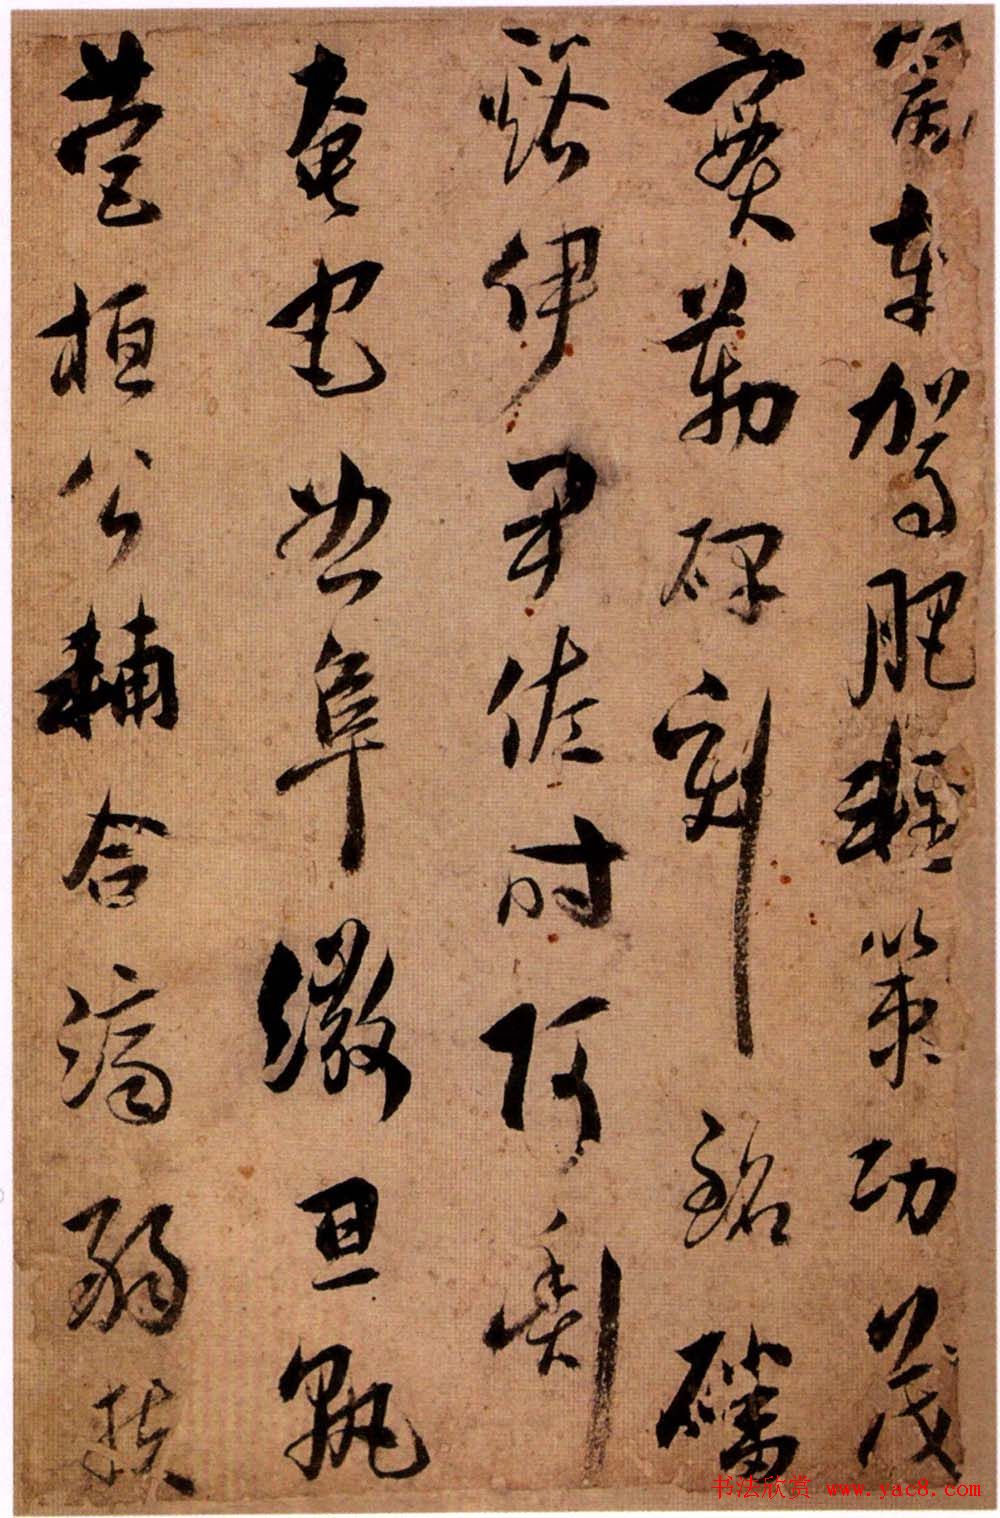 富車駕肥輕策功茂
實勒碑刻銘磻
谿伊尹佐時阿衡
奄宅曲阜微旦孰
營桓公輔合濟弱扶
书法欣赏 www.yac8.com